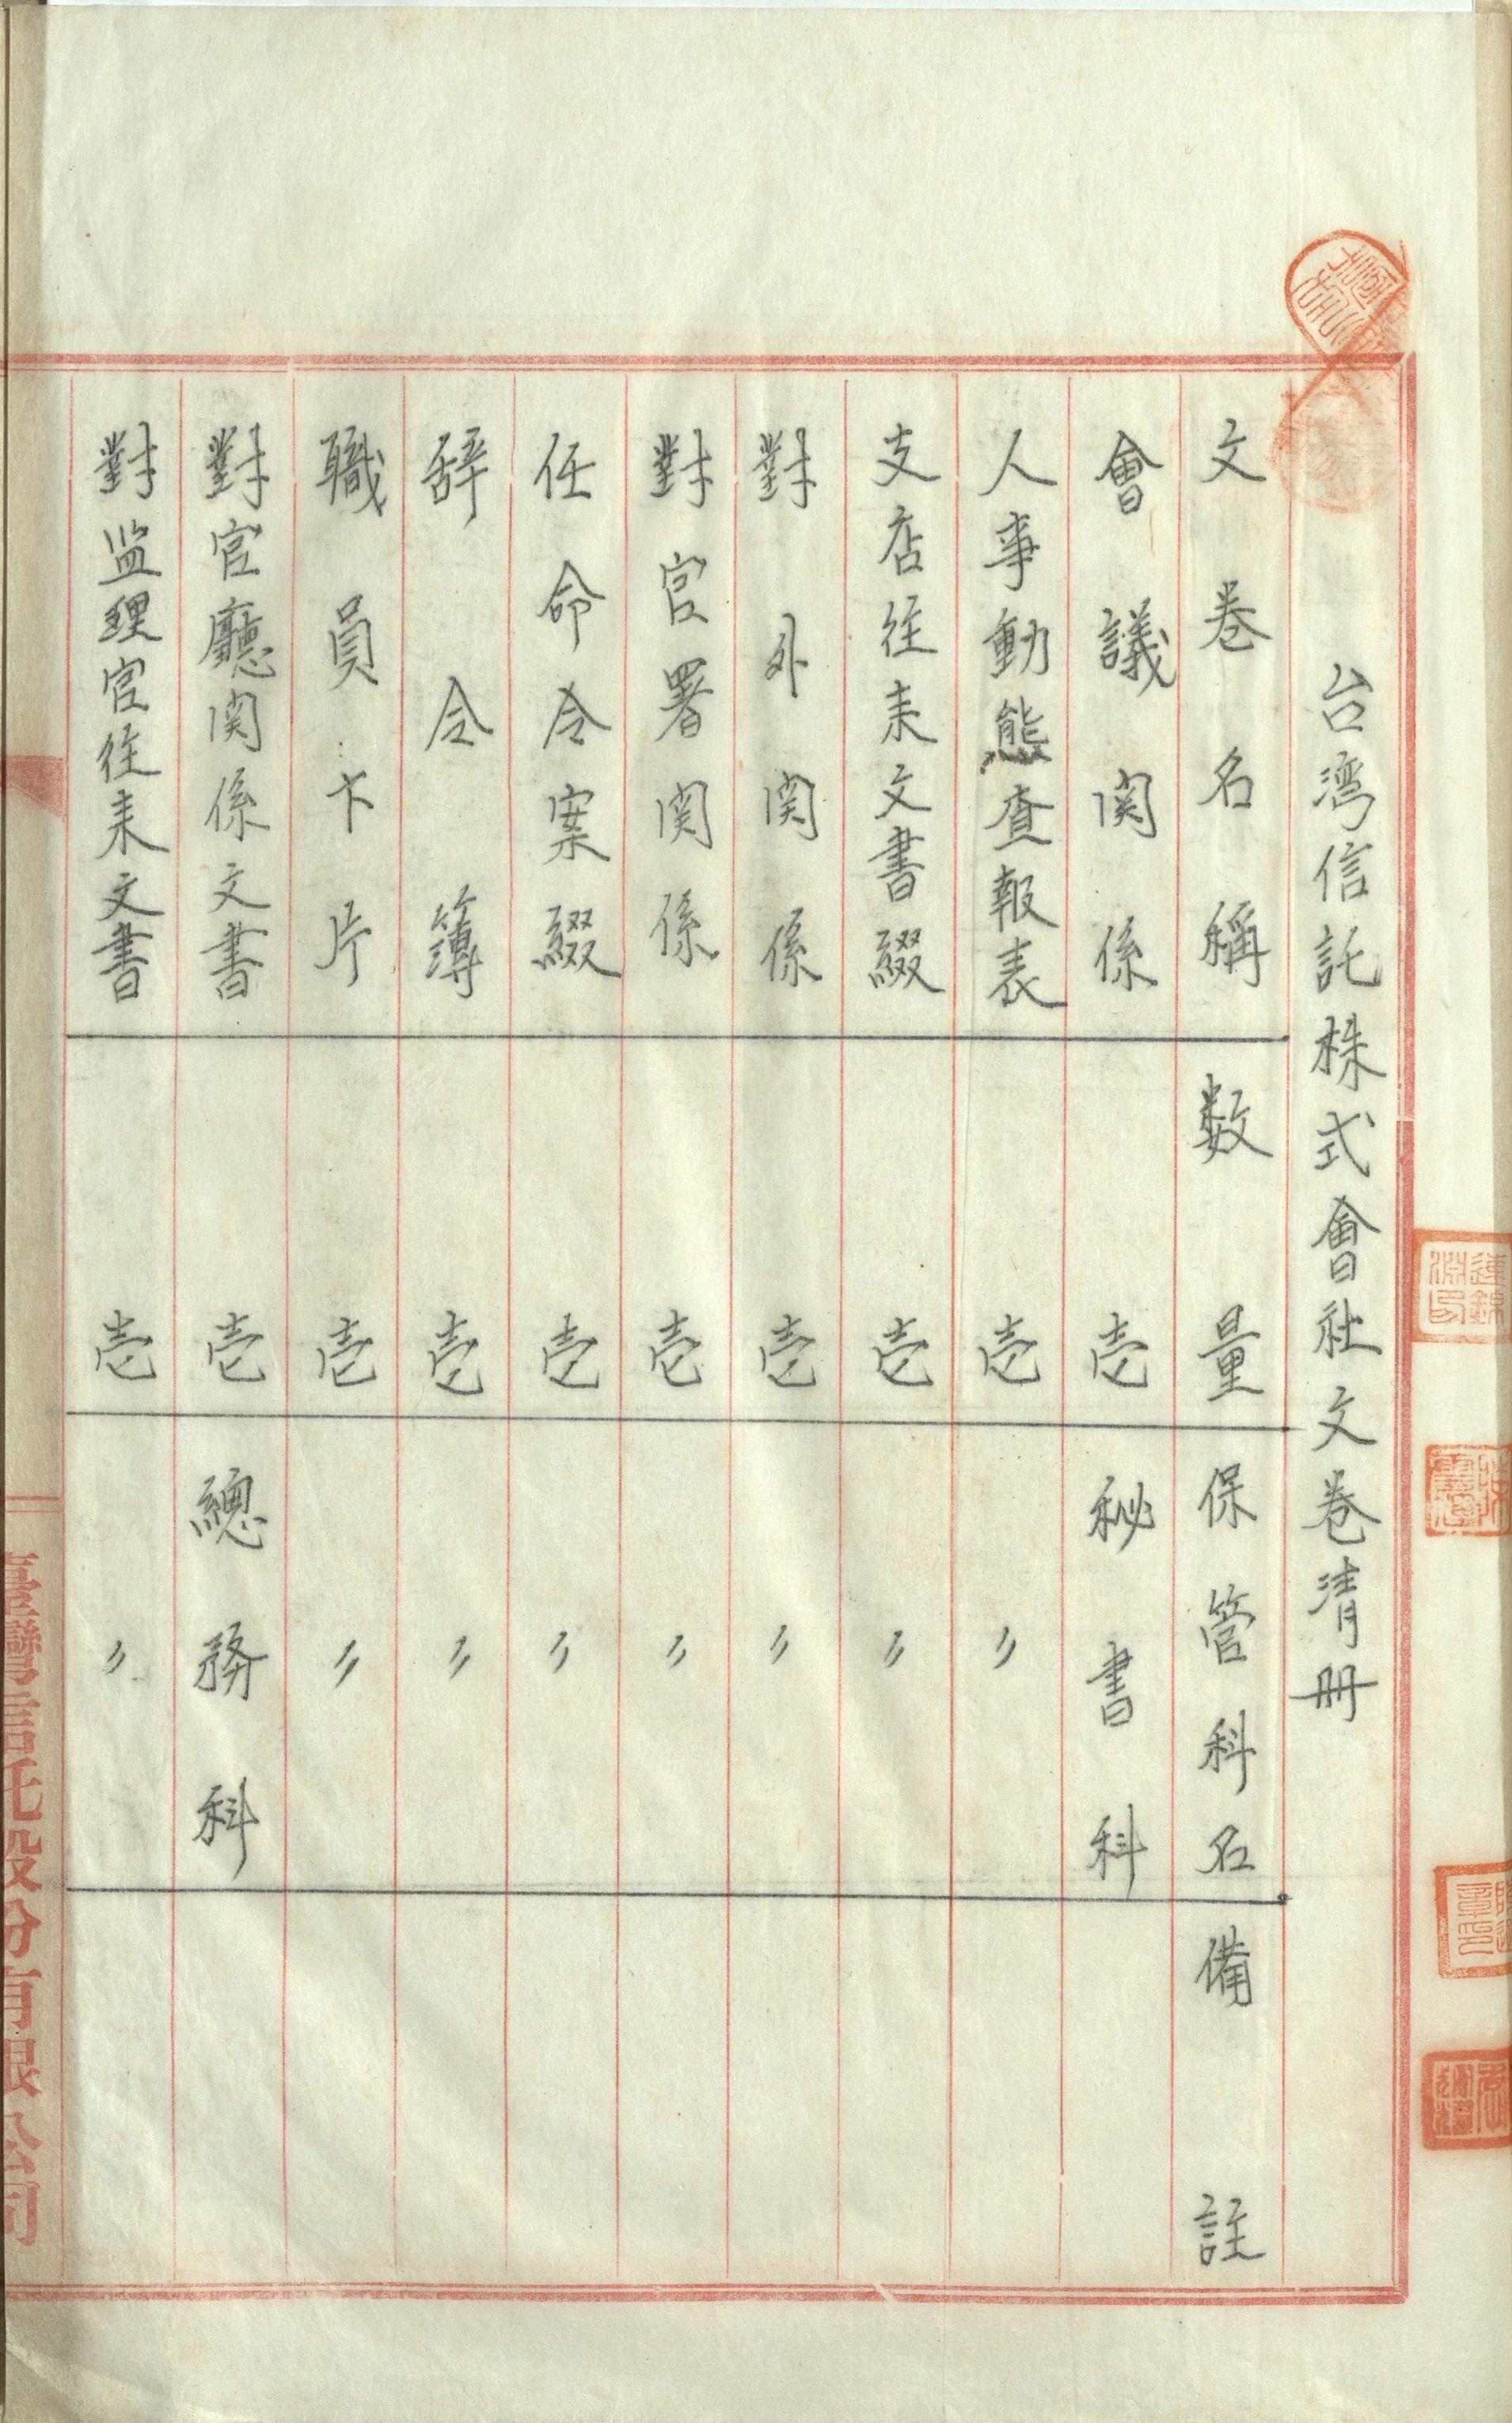 台湾信託株式會社文卷清册
文卷名稱 数量 保管科名 備註
會議関係 壱 秘書科
人事動態查報表 壱 〃
支店往来文書綴 壱 〃
對外関係 壱 〃
對官署関係 壱 〃
任命令案綴 壱 〃
辞令簿 壱 〃
職員卡片 壱 〃
對官廳関係文書 壱 總務科
對监理官往来文書 壱 〃
臺灣信託股份有限公司